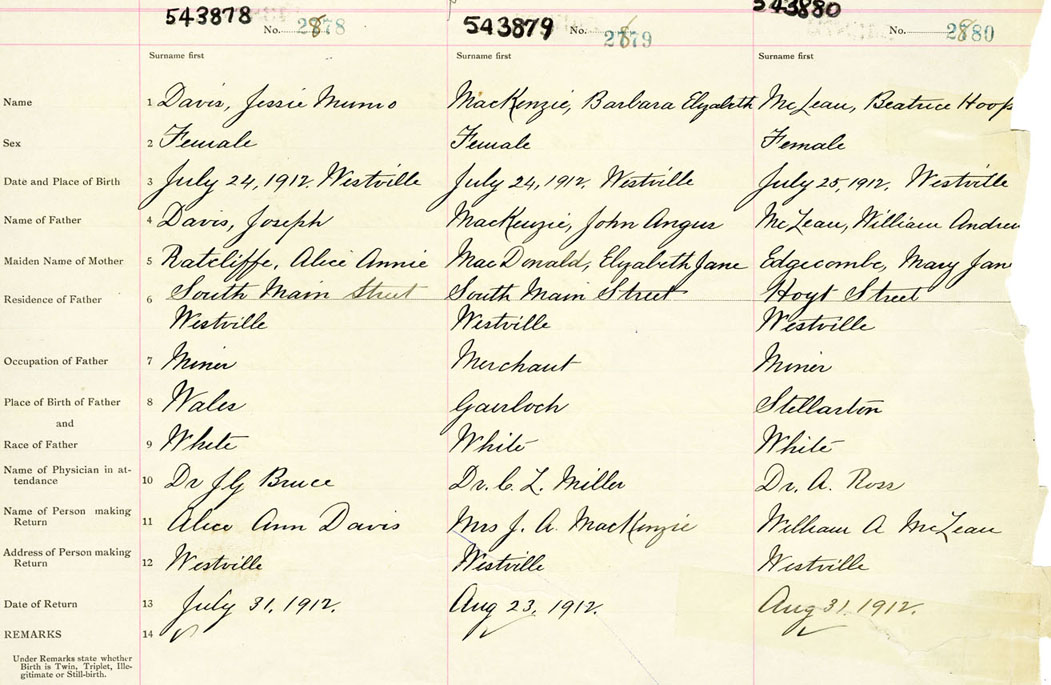 543878 No. 2878 543879 No. 2879 543880 No. 2880
Surname first Surname first Surname first
Name 1 Davis, Jessie Munro MacKenzie, Barbara Elizabeth McLean, Beatrice Hoop
Sex 2 Female Female Female
Date and Place of Birth 3 July 24, 1912. Westville July 24, 1912. Westville July 25, 1912. Westville
Name of Father 4 Davis, Joseph MacKenzie, John Angus McLean, William Andrew
Maiden Name of Mother 5 Ratcliffe, Alice Annie MacDonald, Elizabeth Jane Edgecombe, Mary Jan
Residence of Father 6 South Main Street South Main Street Hoyt Street
Westville Westville Westville
Occupation of Father 7 Miner Merchant Miner
Place of Birth of Father 8 Wales Gairloch Stellarton
and
Race of Father 9 White White White
Name of Physician in at-
tendance 10 Dr J G Bruce Dr. C. L. Miller Dr. A. Ross
Name of Person making
Return 11 Alice Ann Davis Mrs J. A. MacKenzie William A McLean
Address of Person making
Return 12 Westville Westville Westville
Date of Return 13 July 31, 1912. Aug 23, 1912. Aug 31, 1912.
REMARKS 14
Under Remarks state whether
Birth is Twin, Triplet, Ille-
gitimate or Still-birth.